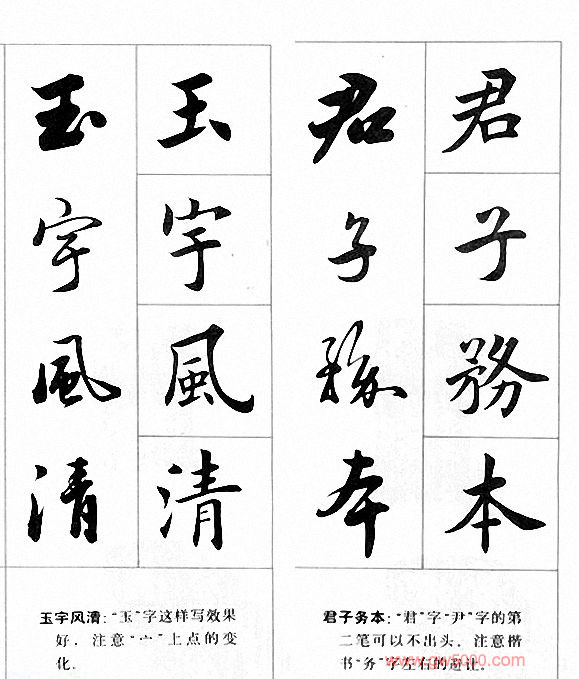 君子務本
君子務本
君子务本:“君”字“尹”字的第
二笔可以不出头,注意楷
书“务”字左右的避让.
玉宇風清
玉宇風清
玉宇风清:“玉”字这样写效果
好,注意“宀”上点的变
化.
www.gw5000.com